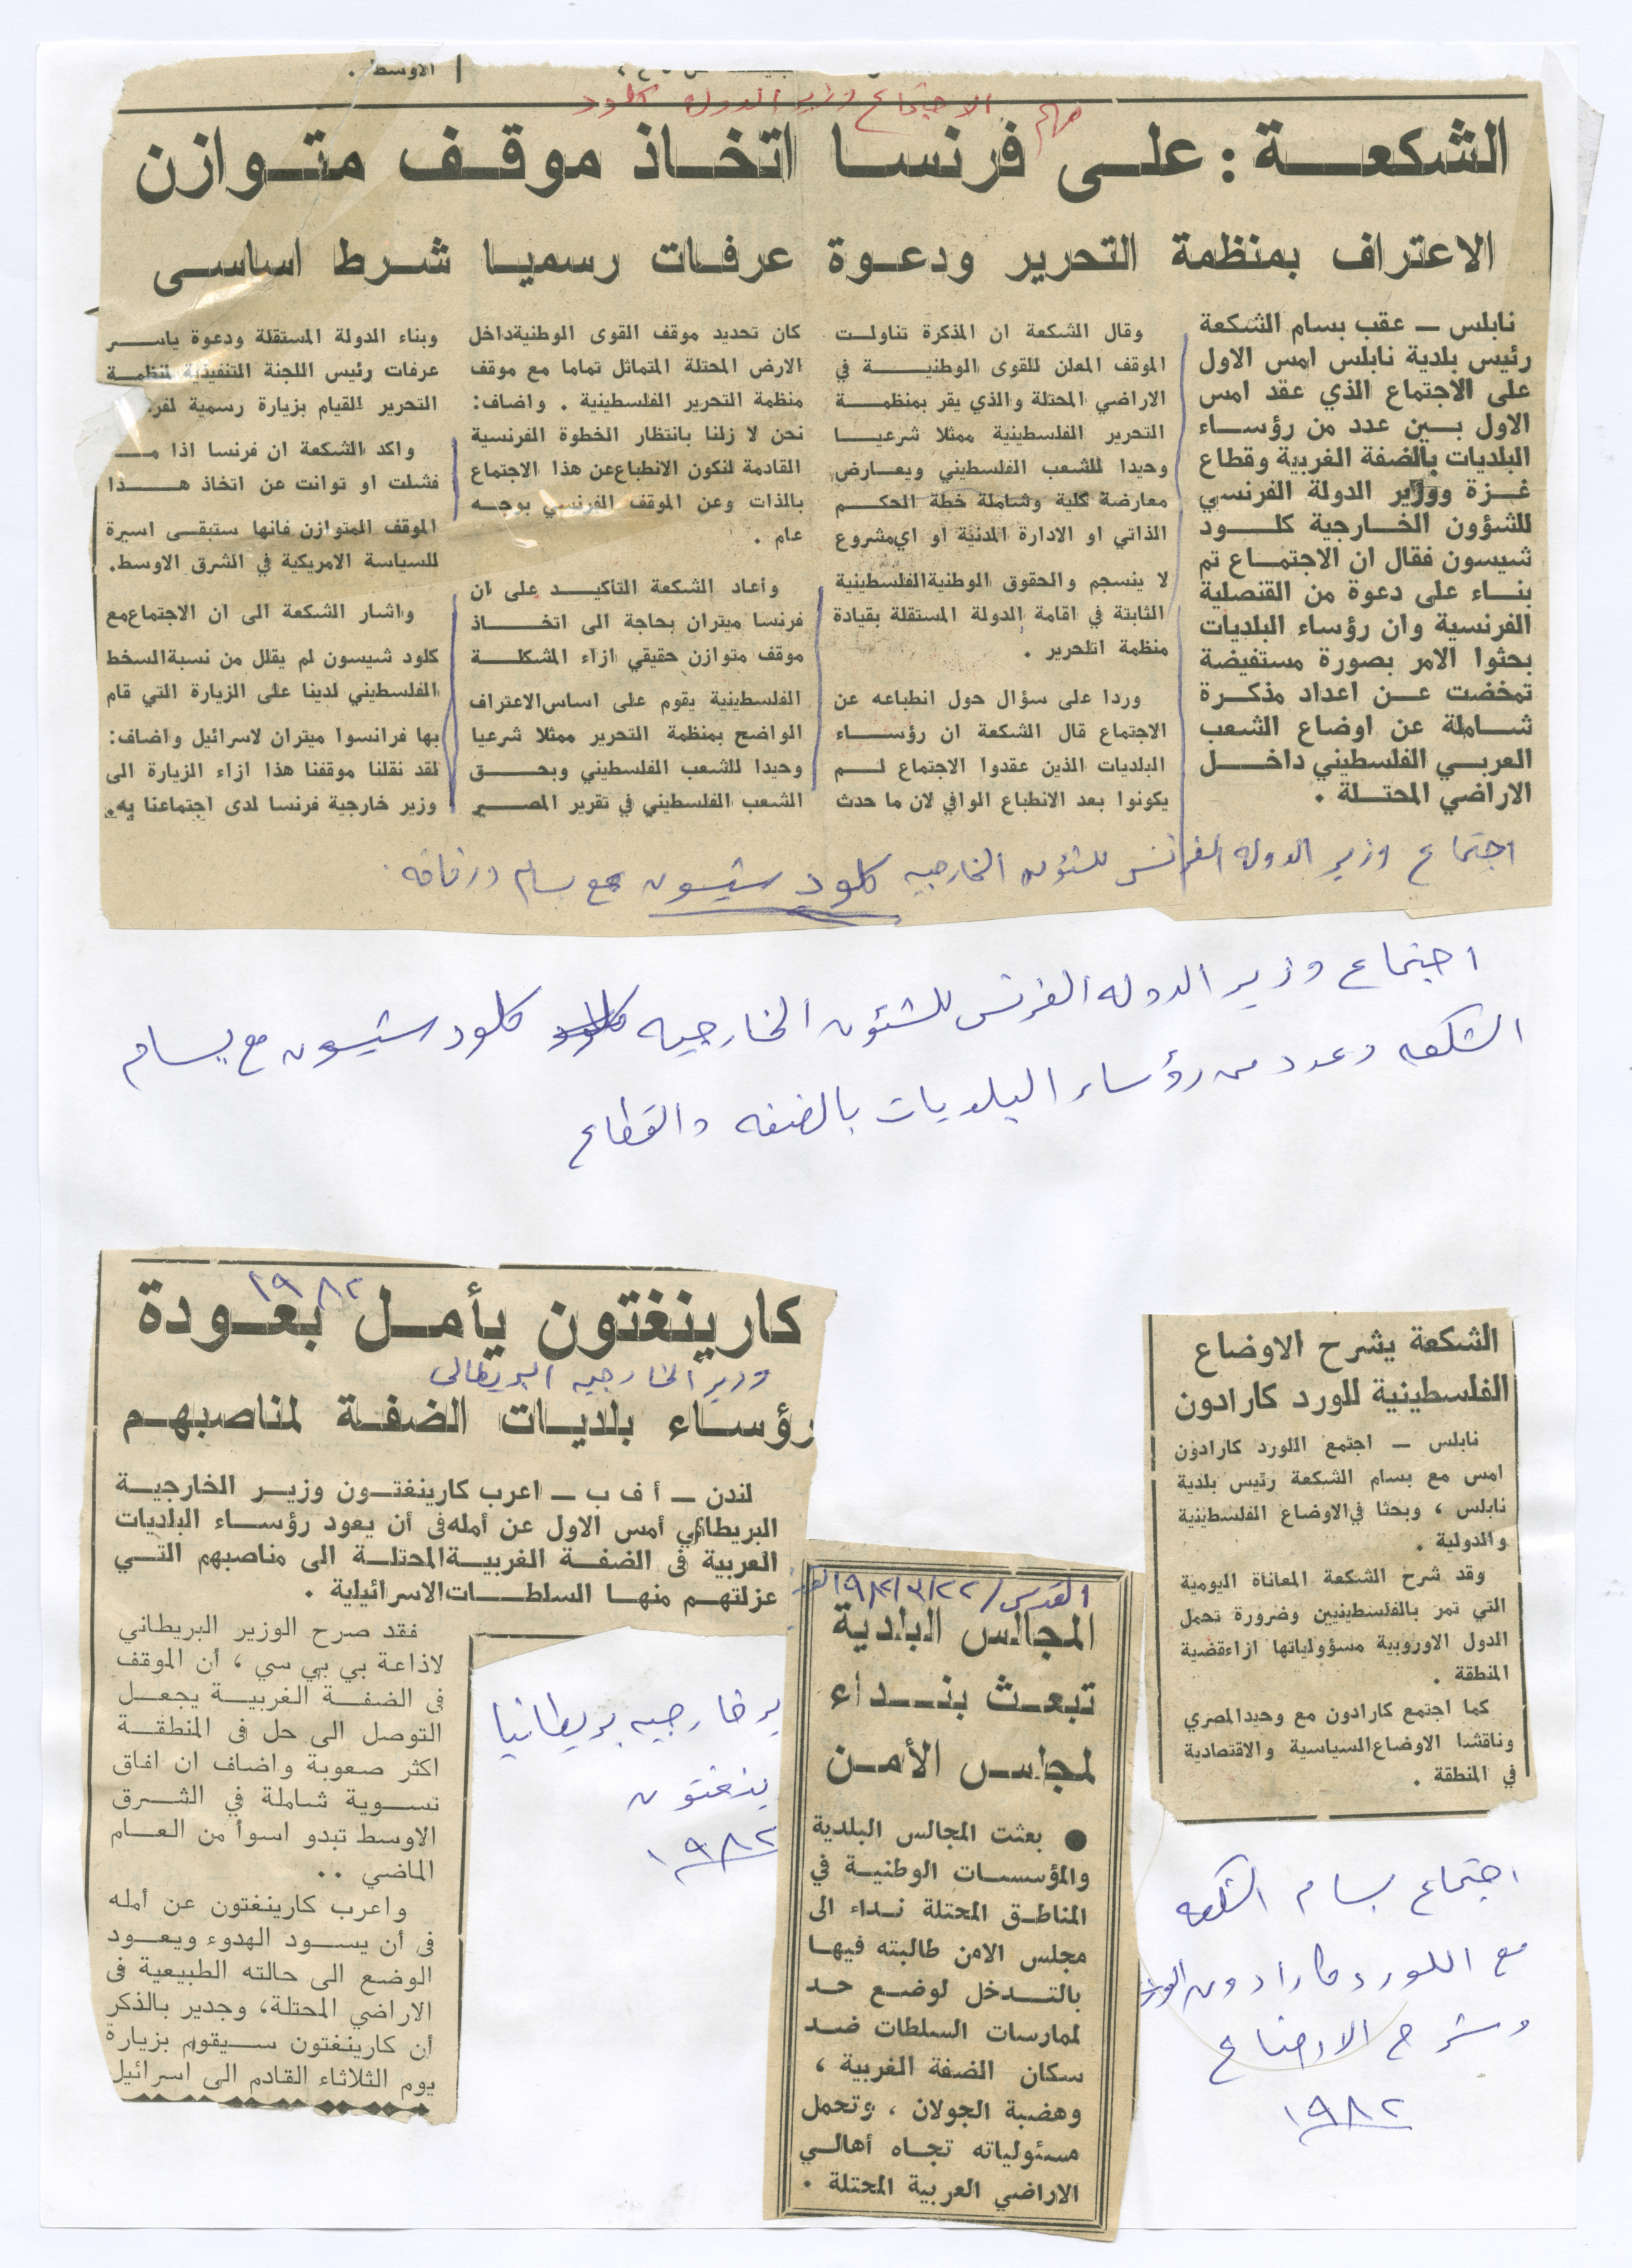 الاوسط .
مهم الاجتماع وزير الدولة كلود
الشكعة : على فرنسا اتخاذ موقف متوازن
الاعتراف بمنظمة التحرير ودعوة عرفات رسميا شرط اساسى
نابلس ــ عقب بسام الشكعة
رئيس بلدية نابلس امس الاول
على الاجتماع الذي عقد امس
الاول بين عدد من رؤساء
البلديات بالضفة الغربية وقطاع
غزة ووزير الدولة الفرنسي
للشؤون الخارجية كلود
شيسون فقال ان الاجتماع تم
بناء على دعوة من القنصلية
الفرنسية وان رؤساء البلديات
بحثوا الامر بصورة مستفيضة
تمخضت عن اعداد مذكرة
شاملة عن اوضاع الشعب
العربي الفلسطيني داخل
الاراضي المحتلة .
وقال الشكعة ان المذكرة تناولت
الموقف المعلن للقوى الوطنية في
الاراضي المحتلة والذي يقر بمنظمة
التحرير الفلسطينية ممثلا شرعيا
وحيدا للشعب الفلسطيني ويعارض
معارضة كلية وشاملة خطة الحكم
الذاتي او الادارة المدنية او اي مشروع
لا ينسجم والحقوق الوطنية الفلسطينية
الثابتة في اقامة الدولة المستقلة بقيادة
منظمة اتلحرير .
وردا على سؤال حول انطباعه عن
الاجتماع قال الشكعة ان رؤساء
البلديات الذين عقدوا الاجتماع لم
يكونوا بعد الانطباع الوافي لان ما حدث
كان تحديد موقف القوى الوطنية داخل
الارض المحتلة المتماثل تماما مع موقف
منظمة التحرير الفلسطينية . واضاف :
نحن لا زلنا بانتظار الخطوة الفرنسية
القادمة لنكون الانطباع عن هذا الاجتماع
بالذات وعن الموقف الفرنسي بوجه
عام .
وأعاد الشكعة التأكيد على ان
فرنسا ميتران بحاجة الى اتخاذ
موقف متوازن حقيقي ازاء المشكلة
الفلسطينية يقوم على اساس الاعتراف
الواضح بمنظمة التحرير ممثلا شرعيا
وحيدا للشعب الفلسطيني وبحق
الشعب الفلسطيني في تقرير المصير
وبناء الدولة المستقلة ودعوة ياسر
عرفات رئيس اللجنة التنفيذية لمنظمة
التحرير للقيام بزيارة رسمية لفر
واكد الشكعة ان فرنسا اذا ما
فشلت او توانت عن اتخاذ هذا
الموقف المتوازن فانها ستبقى اسيرة
للسياسة الامريكية في الشرق الاوسط .
واشار الشكعة الى ان الاجتماع مع
كلود شيسون لم يقلل من نسبة السخط
الفلسطيني لدينا على الزيارة التي قام
بها فرانسوا ميتران لاسرائيل واضاف :
لقد نقلنا موقفنا هذا ازاء الزيارة الى
وزير خارجية فرنسا لدى اجتماعنا به .
اجتماع وزير الدوله الفرنسي للشئون الخارجيه كلود شيسون مع بسام ورفاقه .
اجتماع وزير الدوله الفرنسي للشئون الخارجيه كلود شيسون مع بسام
الشكعه وعدد من رؤساء البلديات بالضفه والقطاع
١٩٨٢
كارينغتون يأمل بعودة
وزير الخارجيه البريطاني
رؤساء بلديات الضفة لمناصبهم
لندن ــ أ ف ب ــ اعرب كارينغتون وزير الخارجية
البريطاني أمس الاول عن أمله فى أن يعود رؤساء البلديات
العربية فى الضفة الغربية المحتلة الى مناصبهم التي
عزلتهم منها السلطات الاسرائيلية .
فقد صرح الوزير البريطاني
لاذاعة بي بي سي ، أن الموقف
فى الضفة الغربية يجعل
التوصل الى حل فى المنطقة
اكثر صعوبة واضاف ان افاق
تسوية شاملة في الشرق
الاوسط تبدو اسوأ من العام
الماضي ..
واعرب كارينغتون عن أمله
فى أن يسود الهدوء ويعود
الوضع الى حالته الطبيعية فى
الاراضي المحتلة، وجدير بالذكر
أن كارينغتون سيقوم بزيارة
يوم الثلاثاء القادم الى اسرائيل
ير خارجيه بريطانيا
ينغتون
١٩٨٢
القدس / ٢٢ / ٣ / ١٩٨٢
المجالس البلدية
تبعث بنداء
لمجلس الأمن
● بعثت المجالس البلدية
والمؤسسات الوطنية في
المناطق المحتلة نداء الى
مجلس الامن طالبته فيها
بالتدخل لوضع حد
لممارسات السلطات ضد
سكان الضفة الغربية ،
وهضبة الجولان ، وتحمل
مسئولياته تجاه أهالي
الاراضي العربية المحتلة .
الشكعة يشرح الاوضاع
الفلسطينية للورد كارادون
نابلس ــ اجتمع اللورد كارادون
امس مع بسام الشكعة رئيس بلدية
نابلس ، وبحثا في الاوضاع الفلسطينية
والدولية .
وقد شرح الشكعة المعاناة اليومية
التي تمر بالفلسطينيين وضرورة تحمل
الدول الاوروبية مسؤولياتها ازاء قضية
المنطقة .
كما اجتمع كارادون مع وحيد المصري
وناقشا الاوضاع السياسية والاقتصادية
في المنطقة .
اجتماع بسام الشكعه
مع اللورد كارادون
وشرح الاوضاع
١٩٨٢